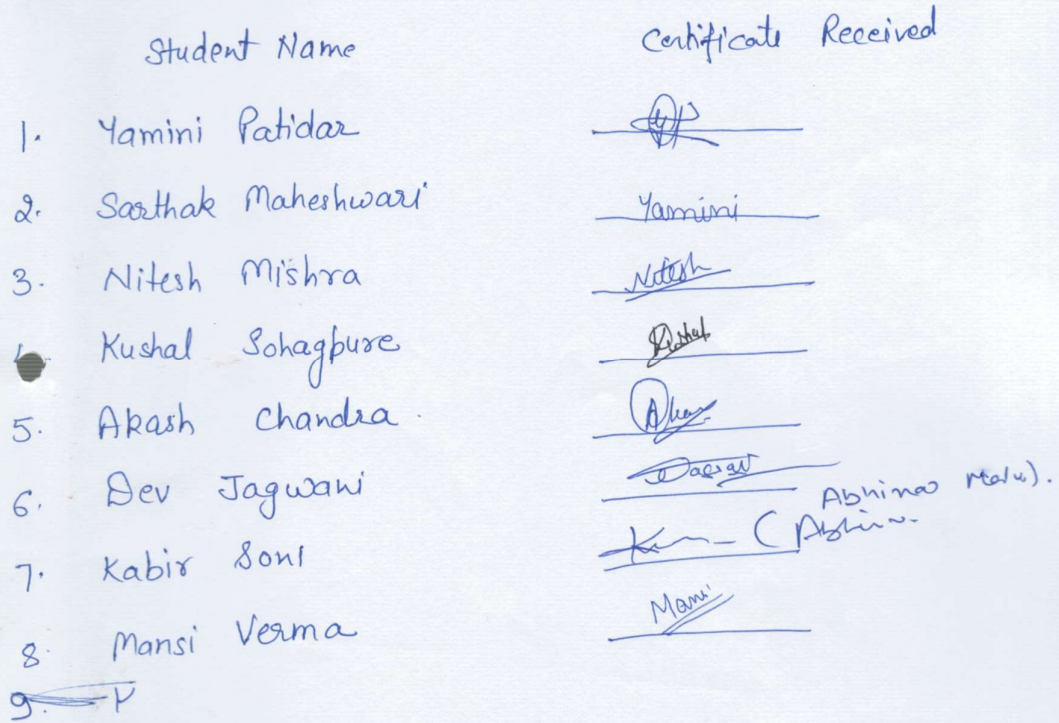 Student Name Certificate Received
1. Yamini Patidar
2. Sarthak Maheshwari Yamini
3. Nitesh Mishra Nitesh
Kushal Sohagpure Kushal
5. Akash Chandra
6. Dev Jagwani
Abhinav
7. Kabir Soni
8. Mansi Verma Mansi
9.